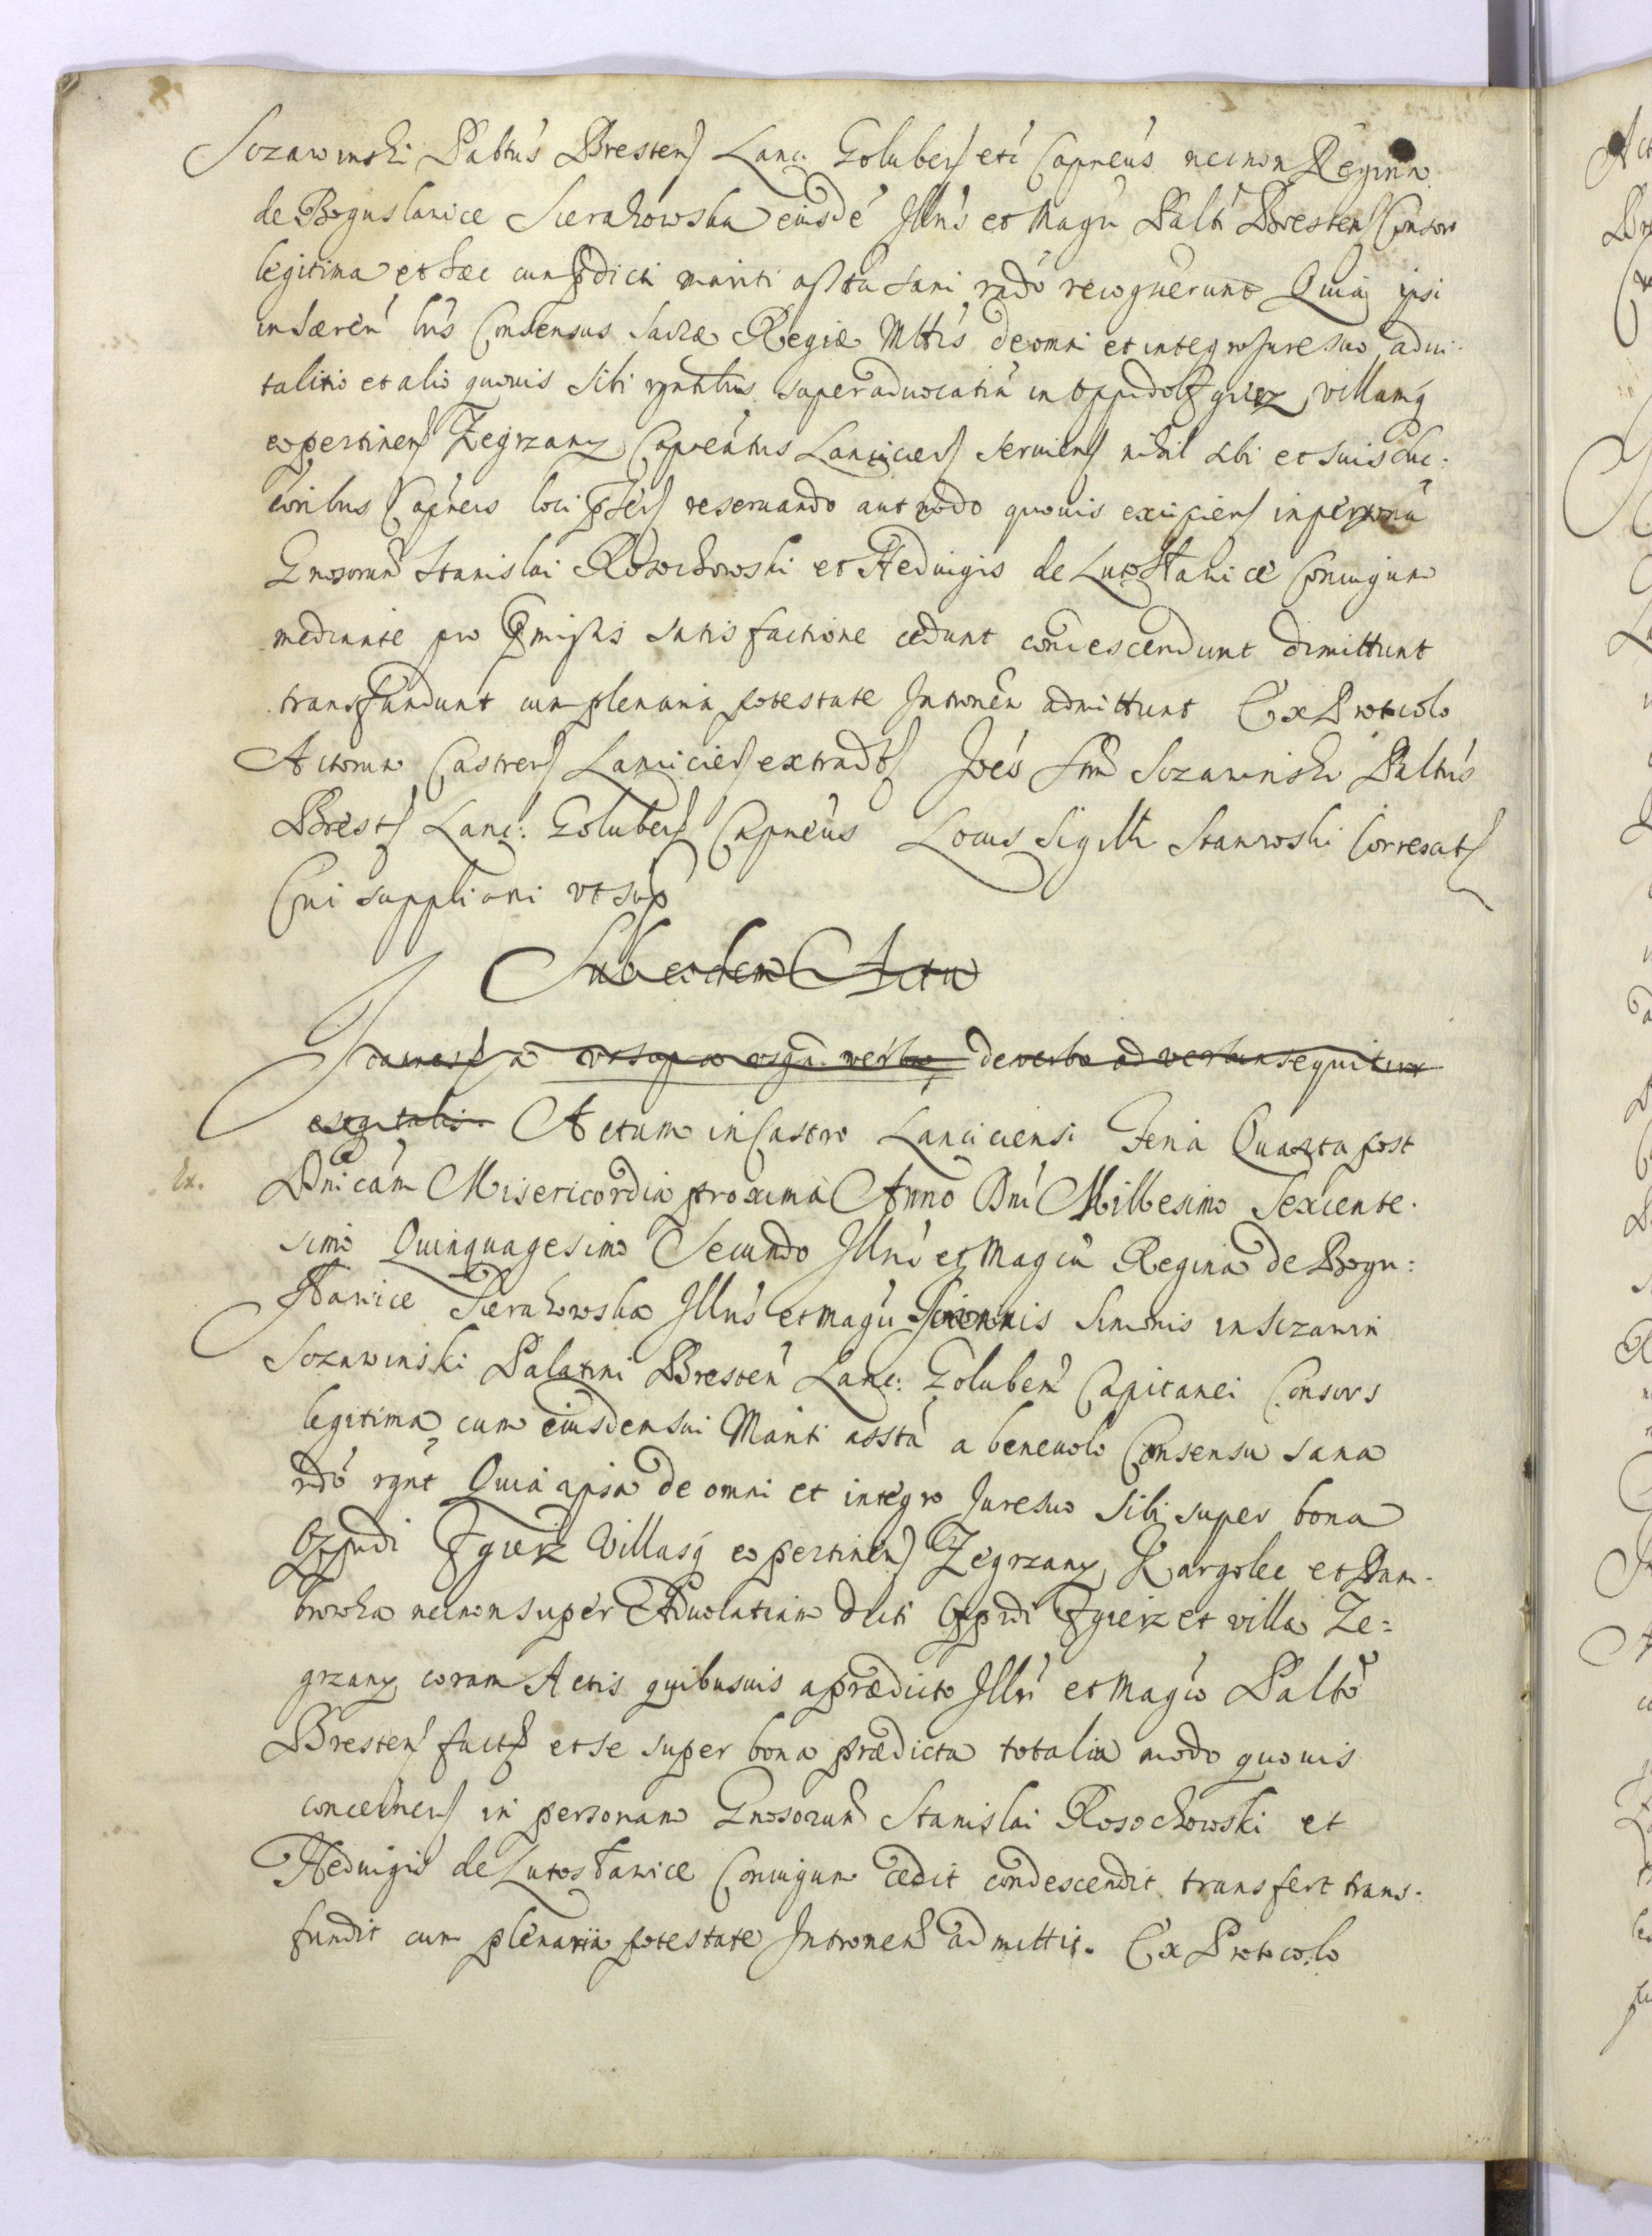 Sczawinski Paltus Bresten Lanc: Goluben etc Capneus necnon Regina
de Boguslawice Sierakowska eiusde Illris et Magci Palti Bresten Consors
legitima et haec cum pdicti mariti assta sani rado recognerunt Quia ipsi
inhaeren lris Consensus Sacrae Regiae Mttis de omni et integro Jure suo advi-
talitio et alio quovis sibi super advocatia in Oppido Zgierz villamq
eo pertinen Zegrzany Capneatus Lanciciens servien nihil sibi et suis suc-
coribus Capneis loci reservando aut modo quovis excipien in persona
Gnosorum Stanislai Rosochowski et Hedvigis de Lutostawice Coniugum
mediante pro pmissis satisfactione cedunt condescendunt dimittunt
transfundunt cum plenaria potestate Intronen admittunt Ex Protocolo
Actorum Castren Lancicien extradt Joes Sim Sczawinski Paltus
Brest Lanc: Goluben Capneus Locus Sigilli Stanroski Correxat
Cui supplicani ut sup
Sub eodem Actu
de verbo ad verbum sequitur
estq talis. Actum in Castro Lanciciensi Feria Quarta post
Ex.
Dnicam Misericordia proxima Anno Dni Millesimo Sexcente-
simo Quinquagesimo Secundo Illris et Magca Regina de Bogu-
stawice Sierakowska Illris et Magci Joannis Simonis in Sczawin
Sczawinski Palatini Bresten Lanc: Goluben Capitanei Consors
legitima cum eiusdem sui Mariti assta a benevolo Consensu sana
rdo rgnt Quia ipsa de omni et integro Jure suo sibi super bona
Oppidi Zgierz Villasq eo pertinen Zegrzany Kargolec et Dam-
browka necnon super Advocatiam dicti Oppidi Zgierz et villa Ze=
grzany coram Actis quibusvis a praedicto Illri et Magco Palto
Bresten fact et se super bona praedicta totalia modo quovis
concernen in personam Gnosorum Stanislai Rosochowski et
Hedvigis de Lutostawice Coniugum cedit condescendit transfert trans-
fundit cum plenaria potestate Intronen admittit. Ex Protocolo